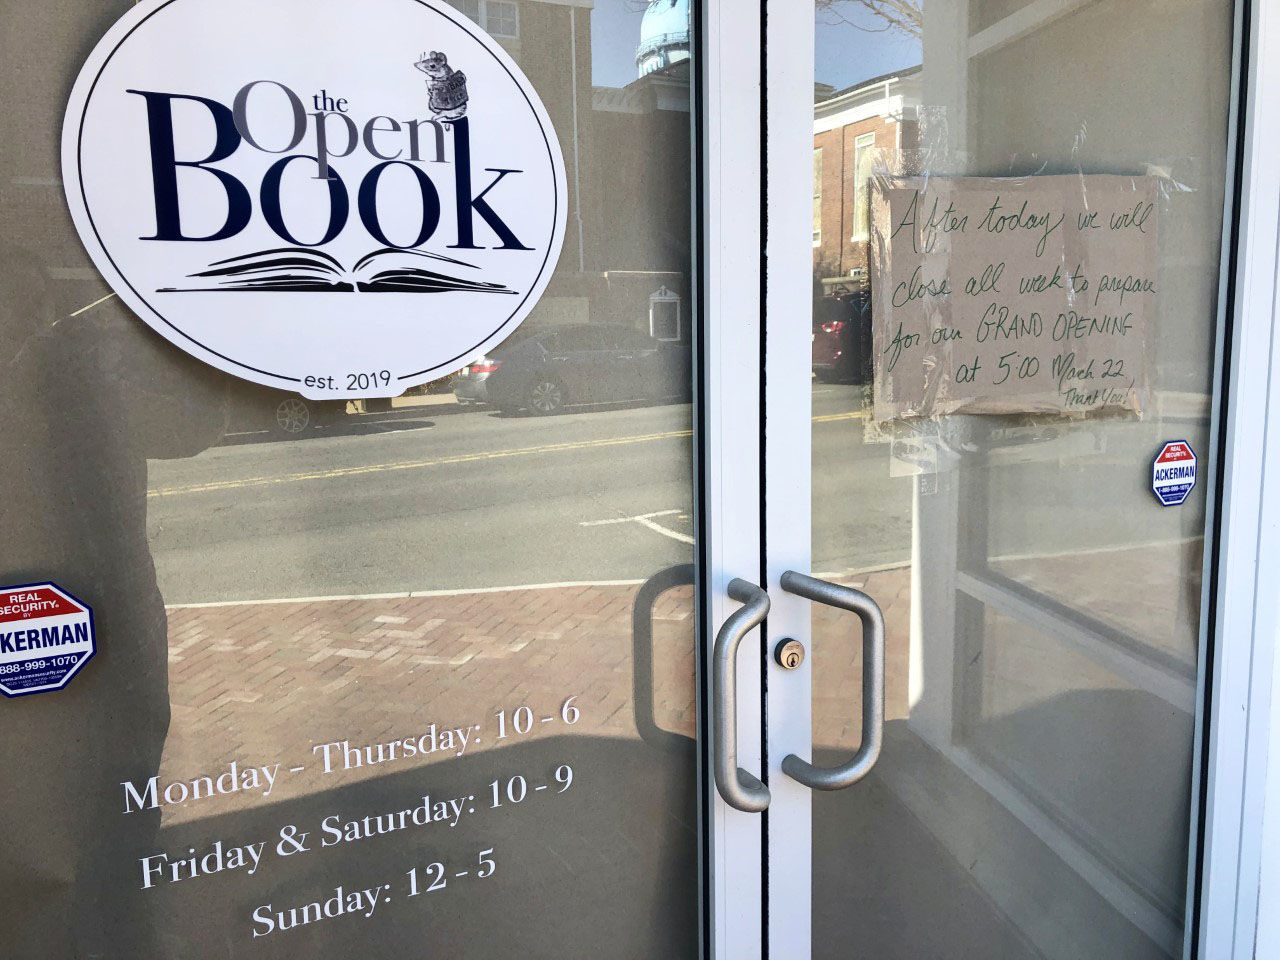 the
Open
Book
est. 2019
After today we will
close all week to prepare
for our GRAND OPENING
at 5:00 March 22
Thank You!
REAL
SECURITY®
BY
ACKERMAN
1-888-999-1070
REAL
SECURITY®
BY
KERMAN
888-999-1070
www.ackermansecurity.com
Monday - Thursday: 10 - 6
Friday & Saturday: 10 - 9
Sunday: 12 - 5